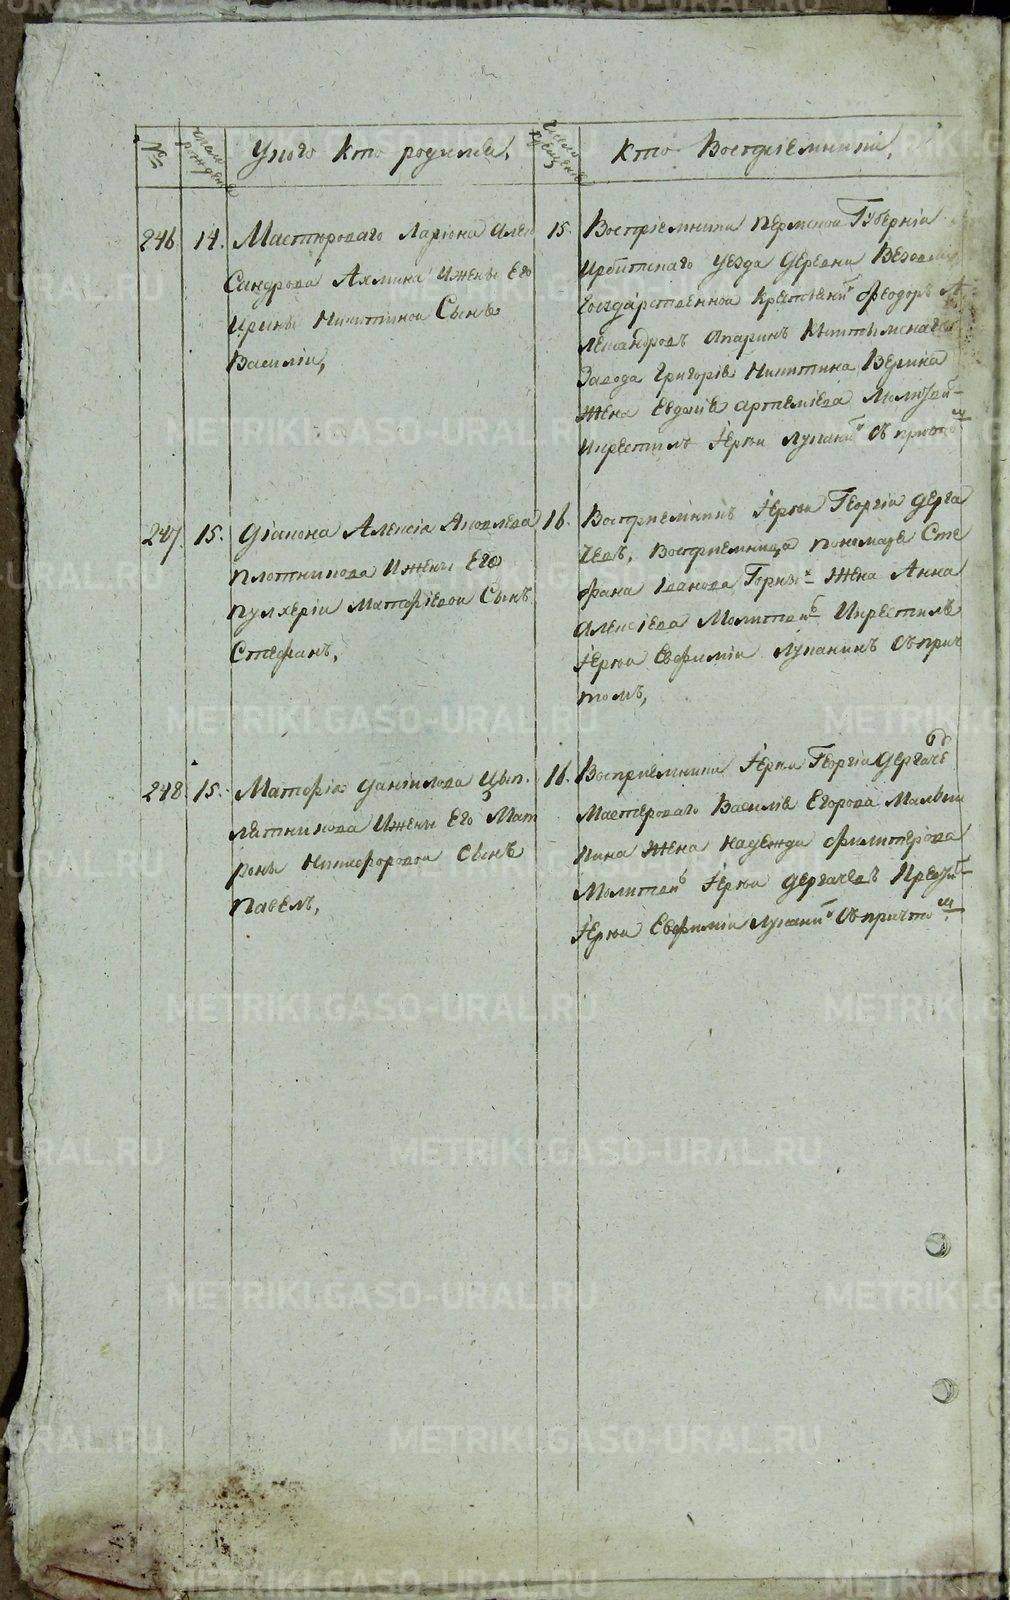 №
Число рожденія
У кого кто родился,
Число крещенія
Кто Воспріемники,
246
14.
Мастероваго Ларіона Алек
сандрова Ахмина и жены Его
Ирины Никитиной Сынъ
Василій,
15.
Воспріемники Пермской Губерніи
Ирбитскаго уезда деревни
Государственной крестьянинъ Феодоръ А
лександровъ Опаринъ Кыштымскаго
Завода Григорія Никитина Верина
жена Евдокія Артеміева Молитвой
и крестилъ Іерей Лупанинъ Съ причтомъ
247
15.
Діакона Алексія Яковлева
Плотникова и жены Его
Пулхеріи Матфіевой Сынъ
Стефанъ,
16.
Воспріемникъ Іерей Георгій Дерга
чевъ, Воспріемница пономаря Сте
фана Іванова Горныхъ жена Анна
Алексіева Молитвой и крестилъ
Іерей Евфимій Лупанинъ Съ прич
томъ,
248
15.
Матфія Даніилова Цып
лятникова и жены Его Мат
роны Никифоровой Сынъ
Павелъ,
16.
Воспріемники Іерей Георгій Дергачевъ
Мастероваго Василія Егорова Мальги
нина жена Надежда Филитерова
Молитвой Іерей Дергачевъ
Іерей Евфимій Лупанинъ Съ причтомъ
METRIKI.GASO-URAL.RU